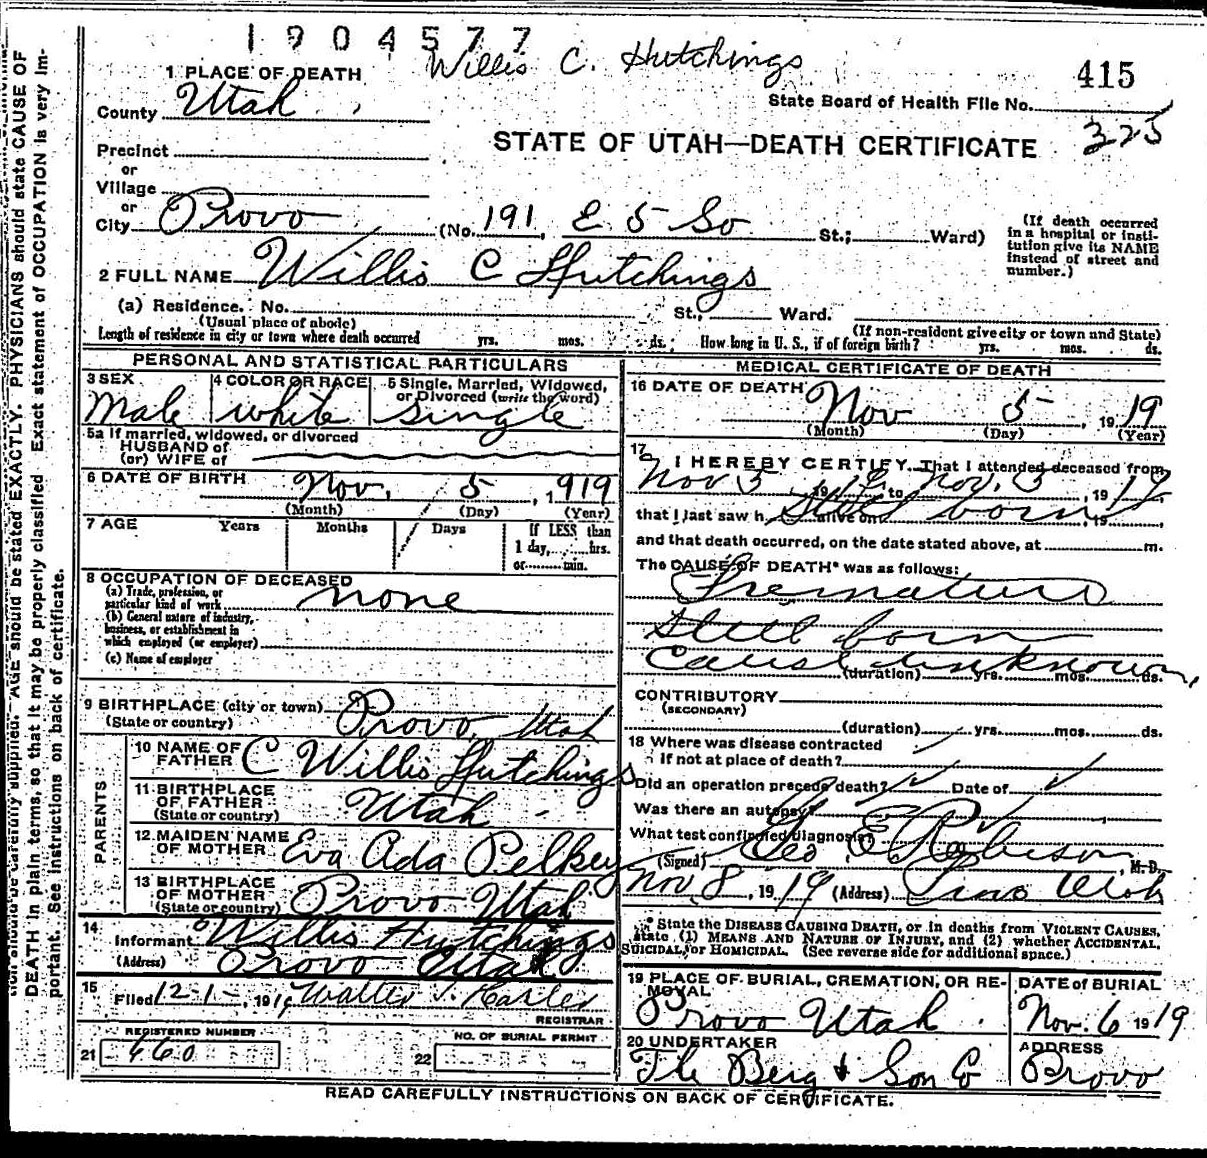 1904577
Willis C. Hutchings
415
1 PLACE OF DEATH
County Utah
State Board of Health File No.
325
STATE OF UTAH—DEATH CERTIFICATE
Precinct
or
Village
or
City Provo (No. 191, E 5 So St.; Ward)
(If death occurred in a hospital or institution give its NAME instead of street and number.)
2 FULL NAME Willis C Hutchings
(a) Residence. No. St., Ward.
(Usual place of abode) (If non-resident give city or town and State)
Length of residence in city or town where death occurred yrs. mos. ds. How long in U. S., if of foreign birth? yrs. mos. ds.
PERSONAL AND STATISTICAL PARTICULARS
3 SEX Male
4 COLOR OR RACE white
5 Single, Married, Widowed, or Divorced (write the word) single
5a If married, widowed, or divorced
HUSBAND of
(or) WIFE of
6 DATE OF BIRTH Nov. 5, 1919
(Month) (Day) (Year)
7 AGE Years Months Days If LESS than
1 day, hrs.
or min.
8 OCCUPATION OF DECEASED
(a) Trade, profession, or
particular kind of work none
(b) General nature of industry,
business, or establishment in
which employed (or employer)
(c) Name of employer
9 BIRTHPLACE (city or town) Provo, Utah
(State or country)
PARENTS
10 NAME OF FATHER C Willis Hutchings
11 BIRTHPLACE OF FATHER Utah
(State or country)
12 MAIDEN NAME OF MOTHER Eva Ada Pelkey
13 BIRTHPLACE OF MOTHER Provo Utah
(State or country)
14 Informant Willis Hutchings
(Address) Provo Utah
15 Filed 12-1-, 1919 Walter
REGISTRAR
REGISTERED NUMBER
21 460
NO. OF BURIAL PERMIT
22
MEDICAL CERTIFICATE OF DEATH
16 DATE OF DEATH Nov 5, 1919
(Month) (Day) (Year)
17 I HEREBY CERTIFY, That I attended deceased from
Nov 5, 1919 to Nov. 5, 1919
that I last saw h alive on Still born, 19
and that death occurred, on the date stated above, at m.
The CAUSE OF DEATH* was as follows:
Premature
Still born
Cause unknown
(duration) yrs. mos. ds.
CONTRIBUTORY
(SECONDARY)
(duration) yrs. mos. ds.
18 Where was disease contracted
if not at place of death?
Did an operation precede death? Date of
Was there an autopsy?
What test confirmed diagnosis?
(Signed) Geo E Robison, M. D.
Nov 8, 1919 (Address) Provo Utah
* State the DISEASE CAUSING DEATH, or in deaths from VIOLENT CAUSES,
state (1) MEANS AND NATURE OF INJURY, and (2) whether ACCIDENTAL,
SUICIDAL, or HOMICIDAL. (See reverse side for additional space.)
19 PLACE OF BURIAL, CREMATION, OR REMOVAL
Provo Utah
DATE of BURIAL
Nov. 6 1919
20 UNDERTAKER
The Berg & Son Co
ADDRESS
Provo
READ CAREFULLY INSTRUCTIONS ON BACK OF CERTIFICATE.
AGE should be stated EXACTLY. PHYSICIANS should state CAUSE OF
DEATH in plain terms, so that it may be properly classified. Exact statement of OCCUPATION is very im-
portant. See instructions on back of certificate.